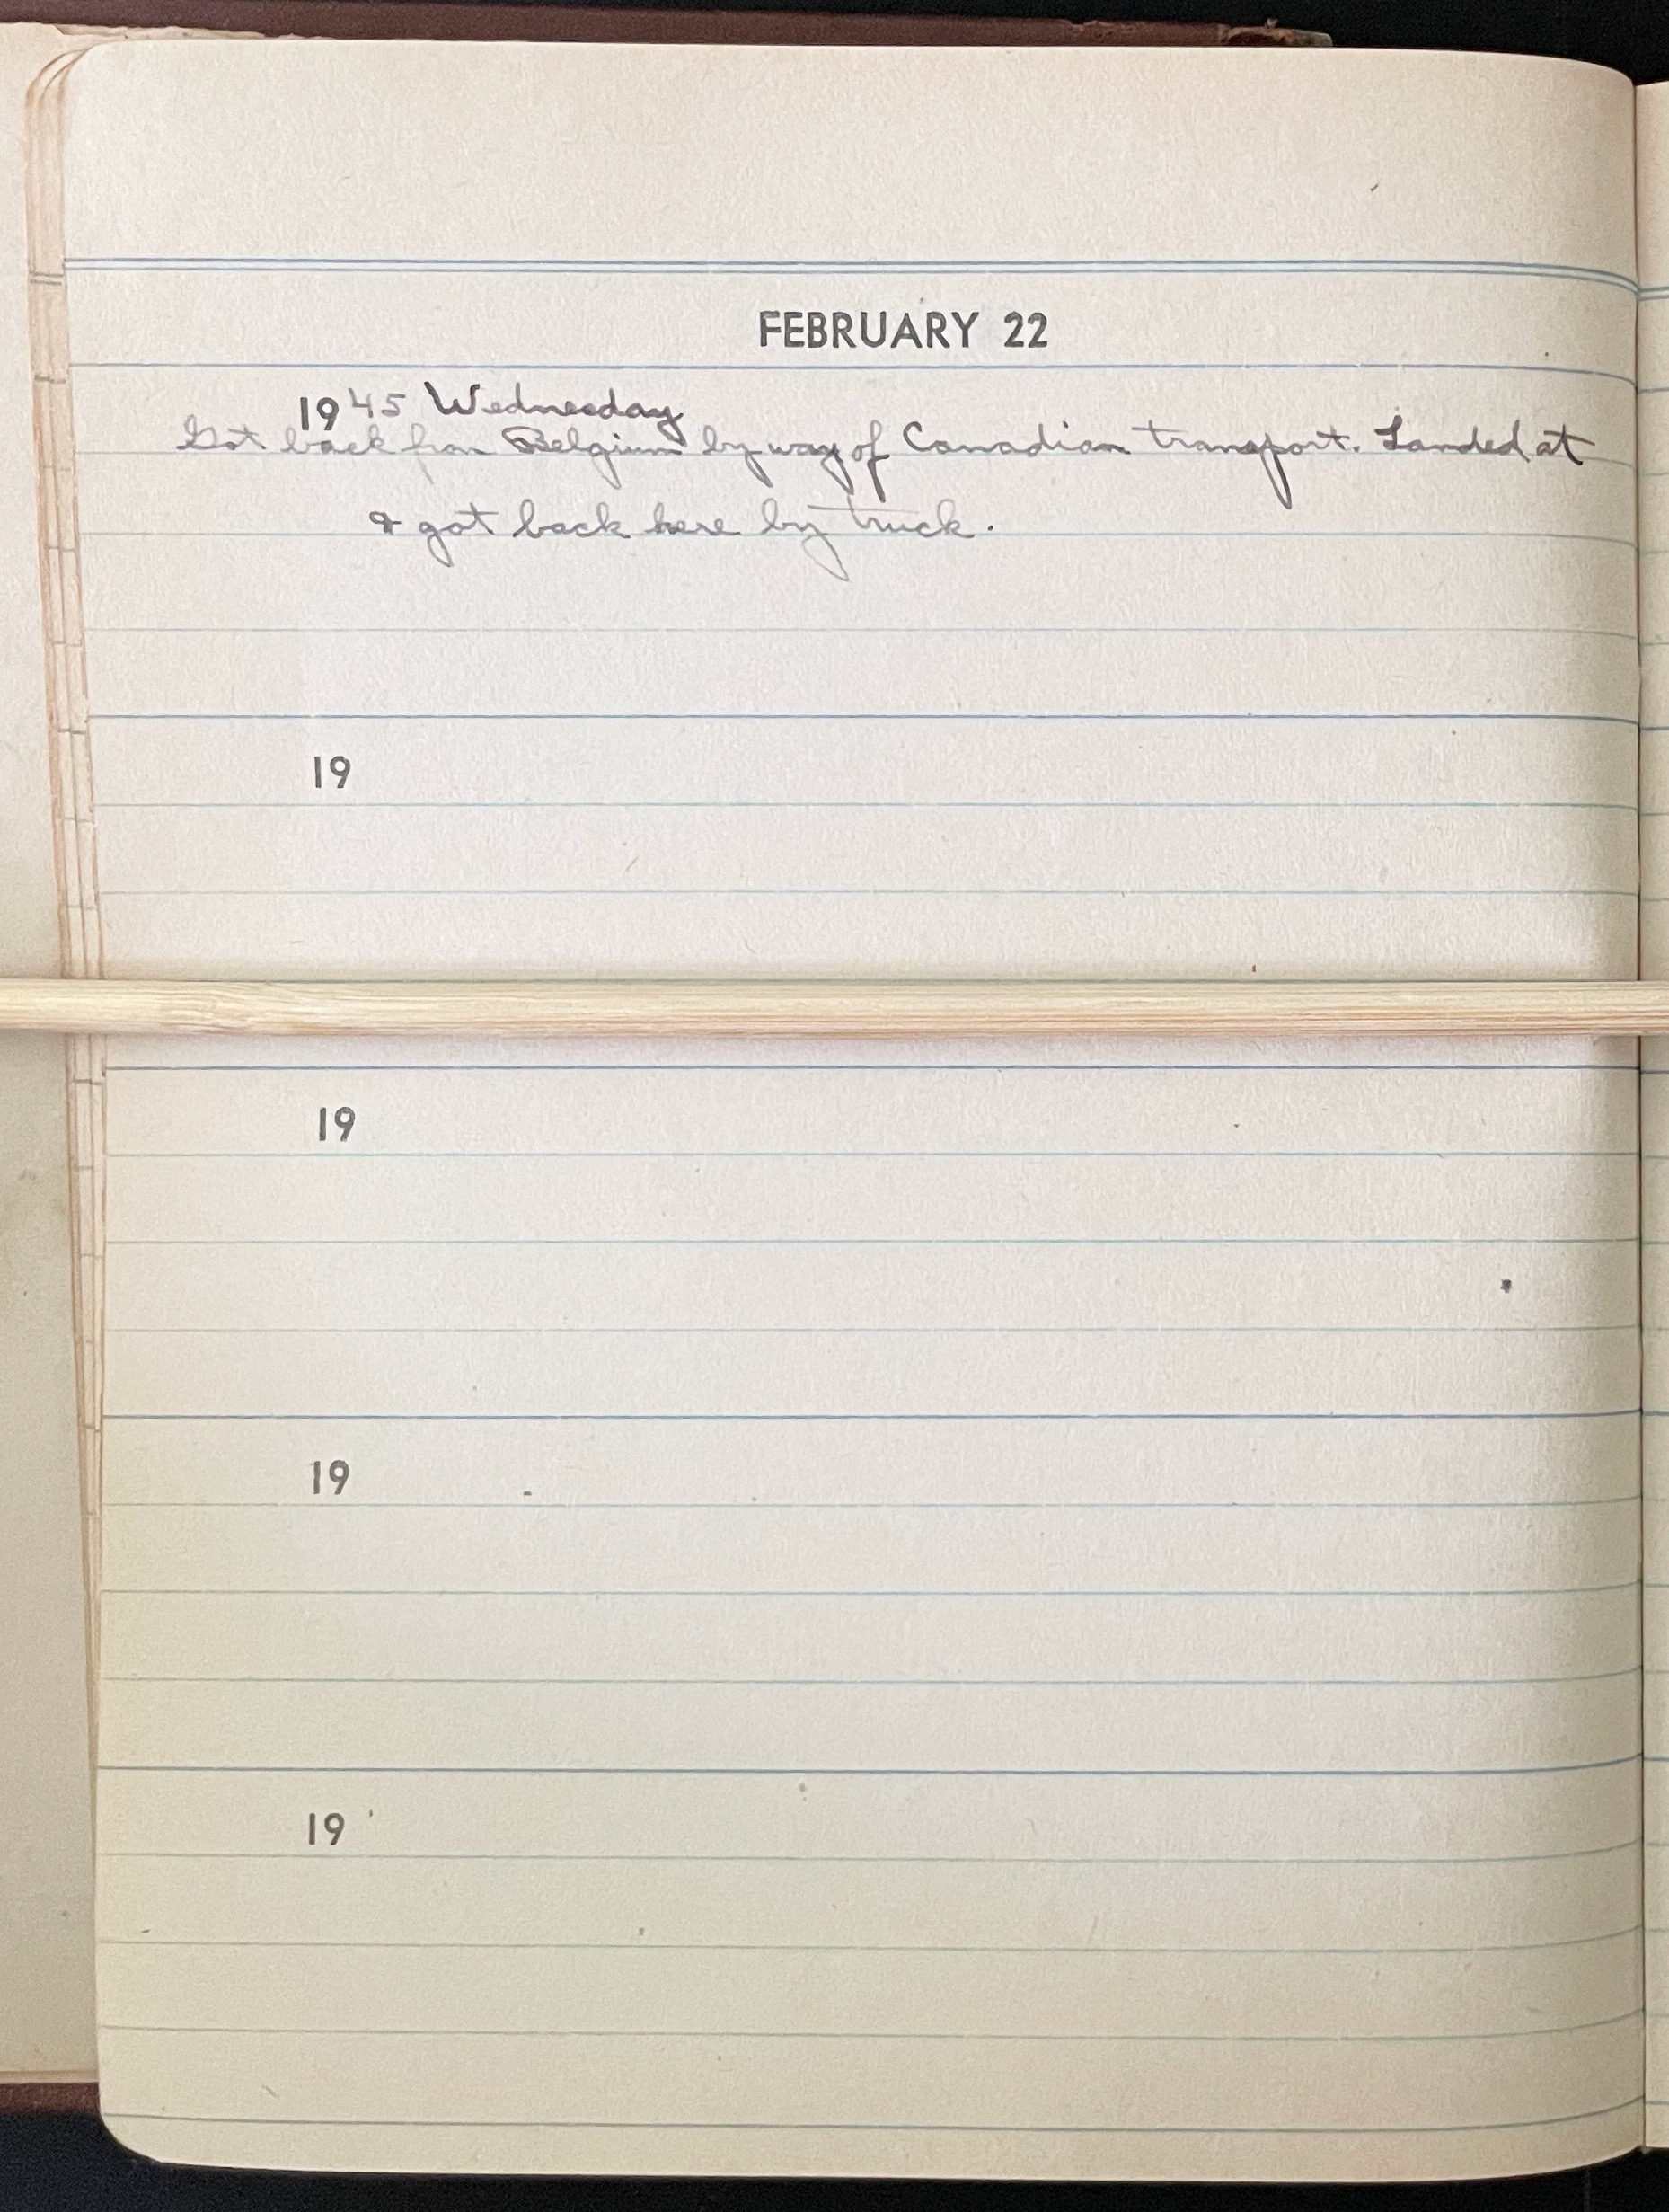 FEBRUARY 22
1945 Wednesday
Got back from Belgium by way of Canadian transport. Landed at
& got back here by truck.
19
19
19
19